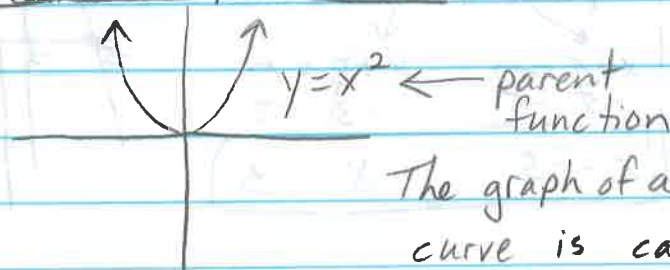 y=x² ← parent
function
The graph of a
curve is ca